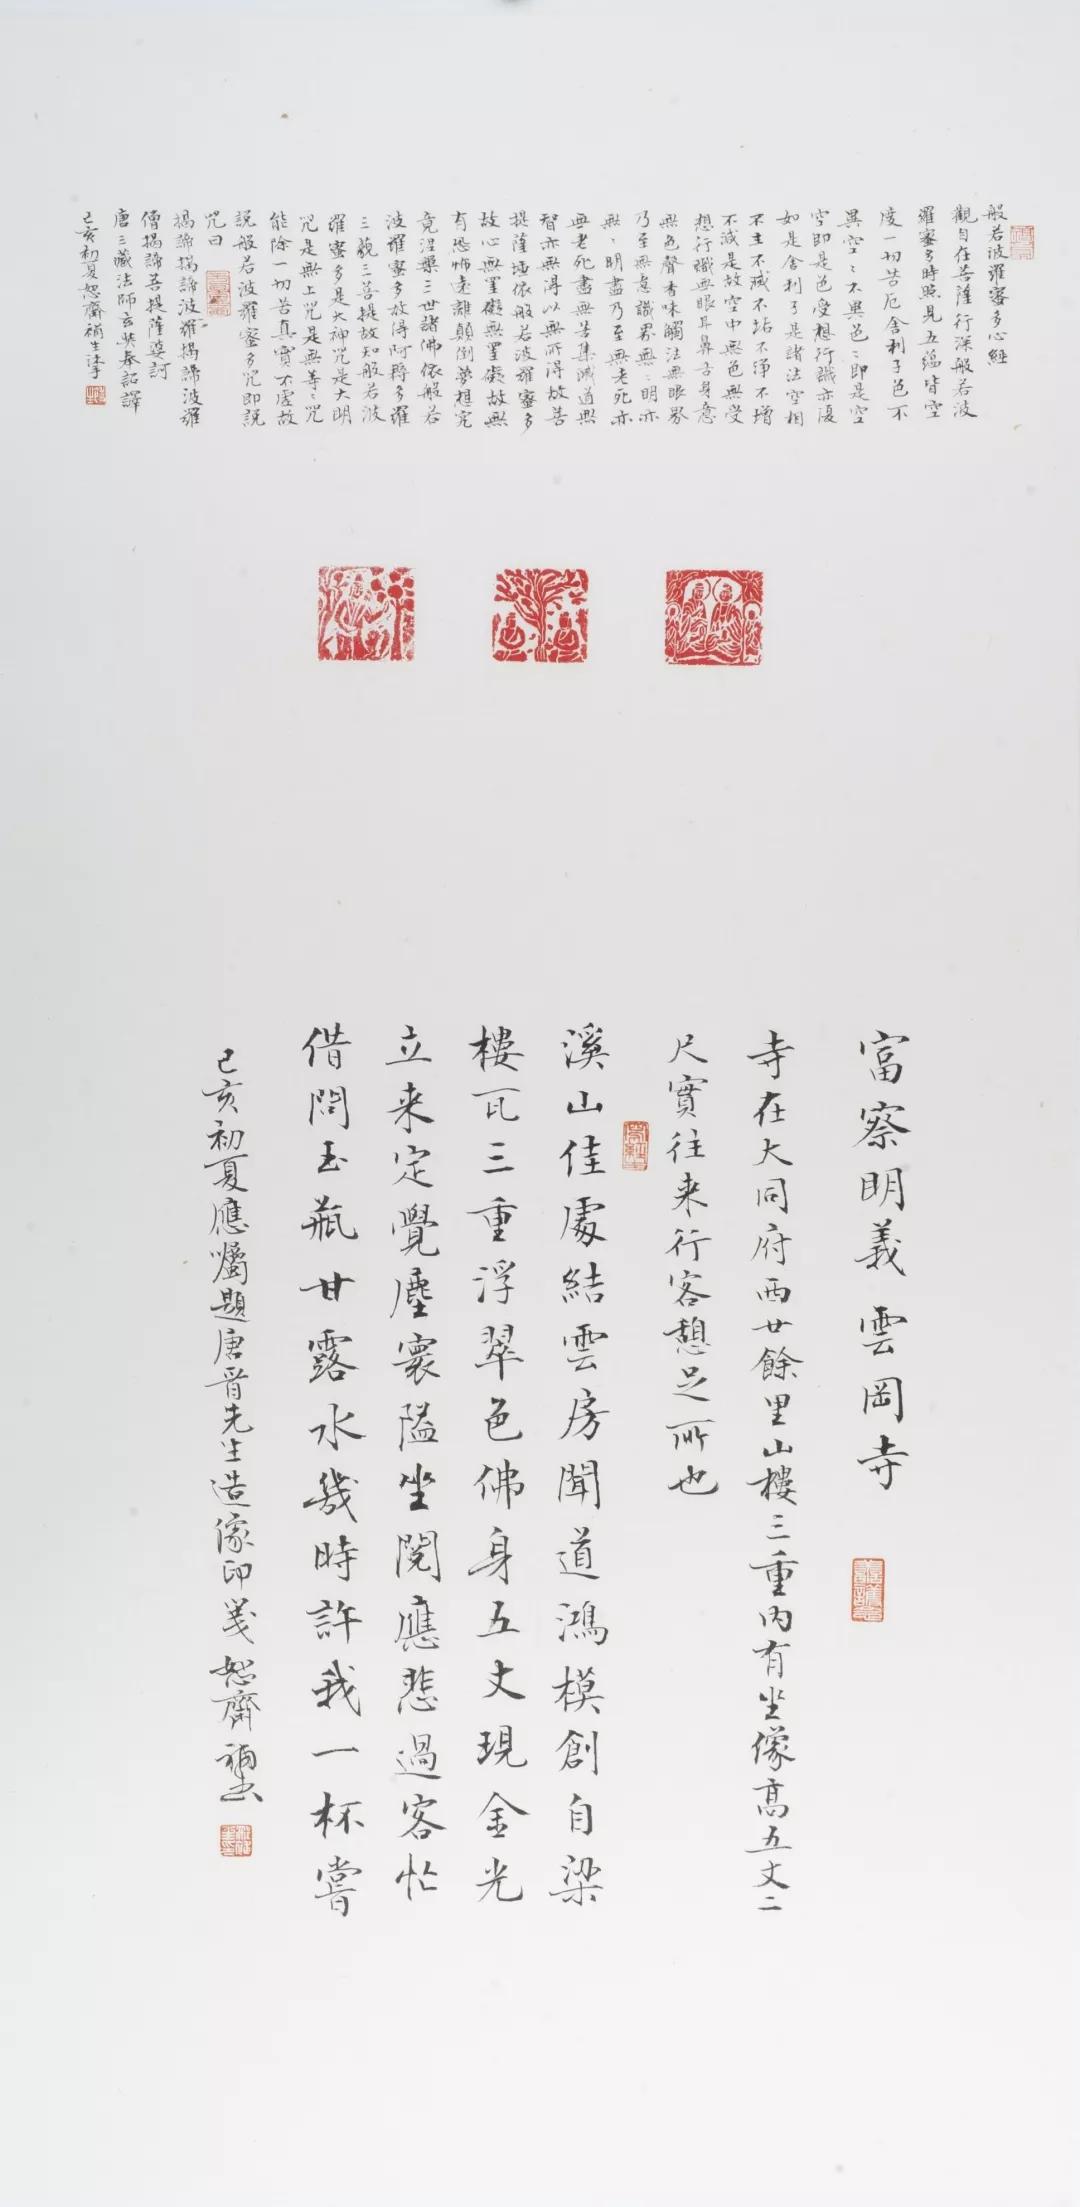 般若波羅蜜多心經
觀自在菩薩行深般若波
羅蜜多時照見五蘊皆空
度一切苦厄舍利子色不
異空〻不異色〻即是空
空即是色受想行識亦復
如是舍利子是諸法空相
不生不滅不垢不淨不增
不減是故空中無色無受
想行識無眼耳鼻舌身意
無色聲香味觸法無眼界
乃至無意識界無〻明亦
無〻明盡乃至無老死亦
無老死盡無苦集滅道無
智亦無得以無所得故菩
提薩埵依般若波羅蜜多
故心無罣礙無罣礙故無
有恐怖遠離顛倒夢想究
竟涅槃三世諸佛依般若
波羅蜜多故得阿耨多羅
三藐三菩提故知般若波
羅蜜多是大神咒是大明
咒是無上咒是無等〻咒
能除一切苦真實不虛故
說般若波羅蜜多咒即說
咒曰
揭諦揭諦波羅揭諦波羅
僧揭諦菩提薩婆訶
唐三藏法師玄奘奉詔譯
己亥初夏恕齋
富察明義雲岡寺
寺在大同府西廿餘里山樓三重內有坐像高五丈二
尺實往來行客憩足所也
溪山佳處結雲房聞道鴻模創自梁
樓瓦三重浮翠色佛身五丈現金光
立来定覺塵寰隘坐閱應悲過客忙
借問玉瓶甘露水幾時許我一杯嘗
己亥初夏應囑題唐晉先生造像印箋恕齋